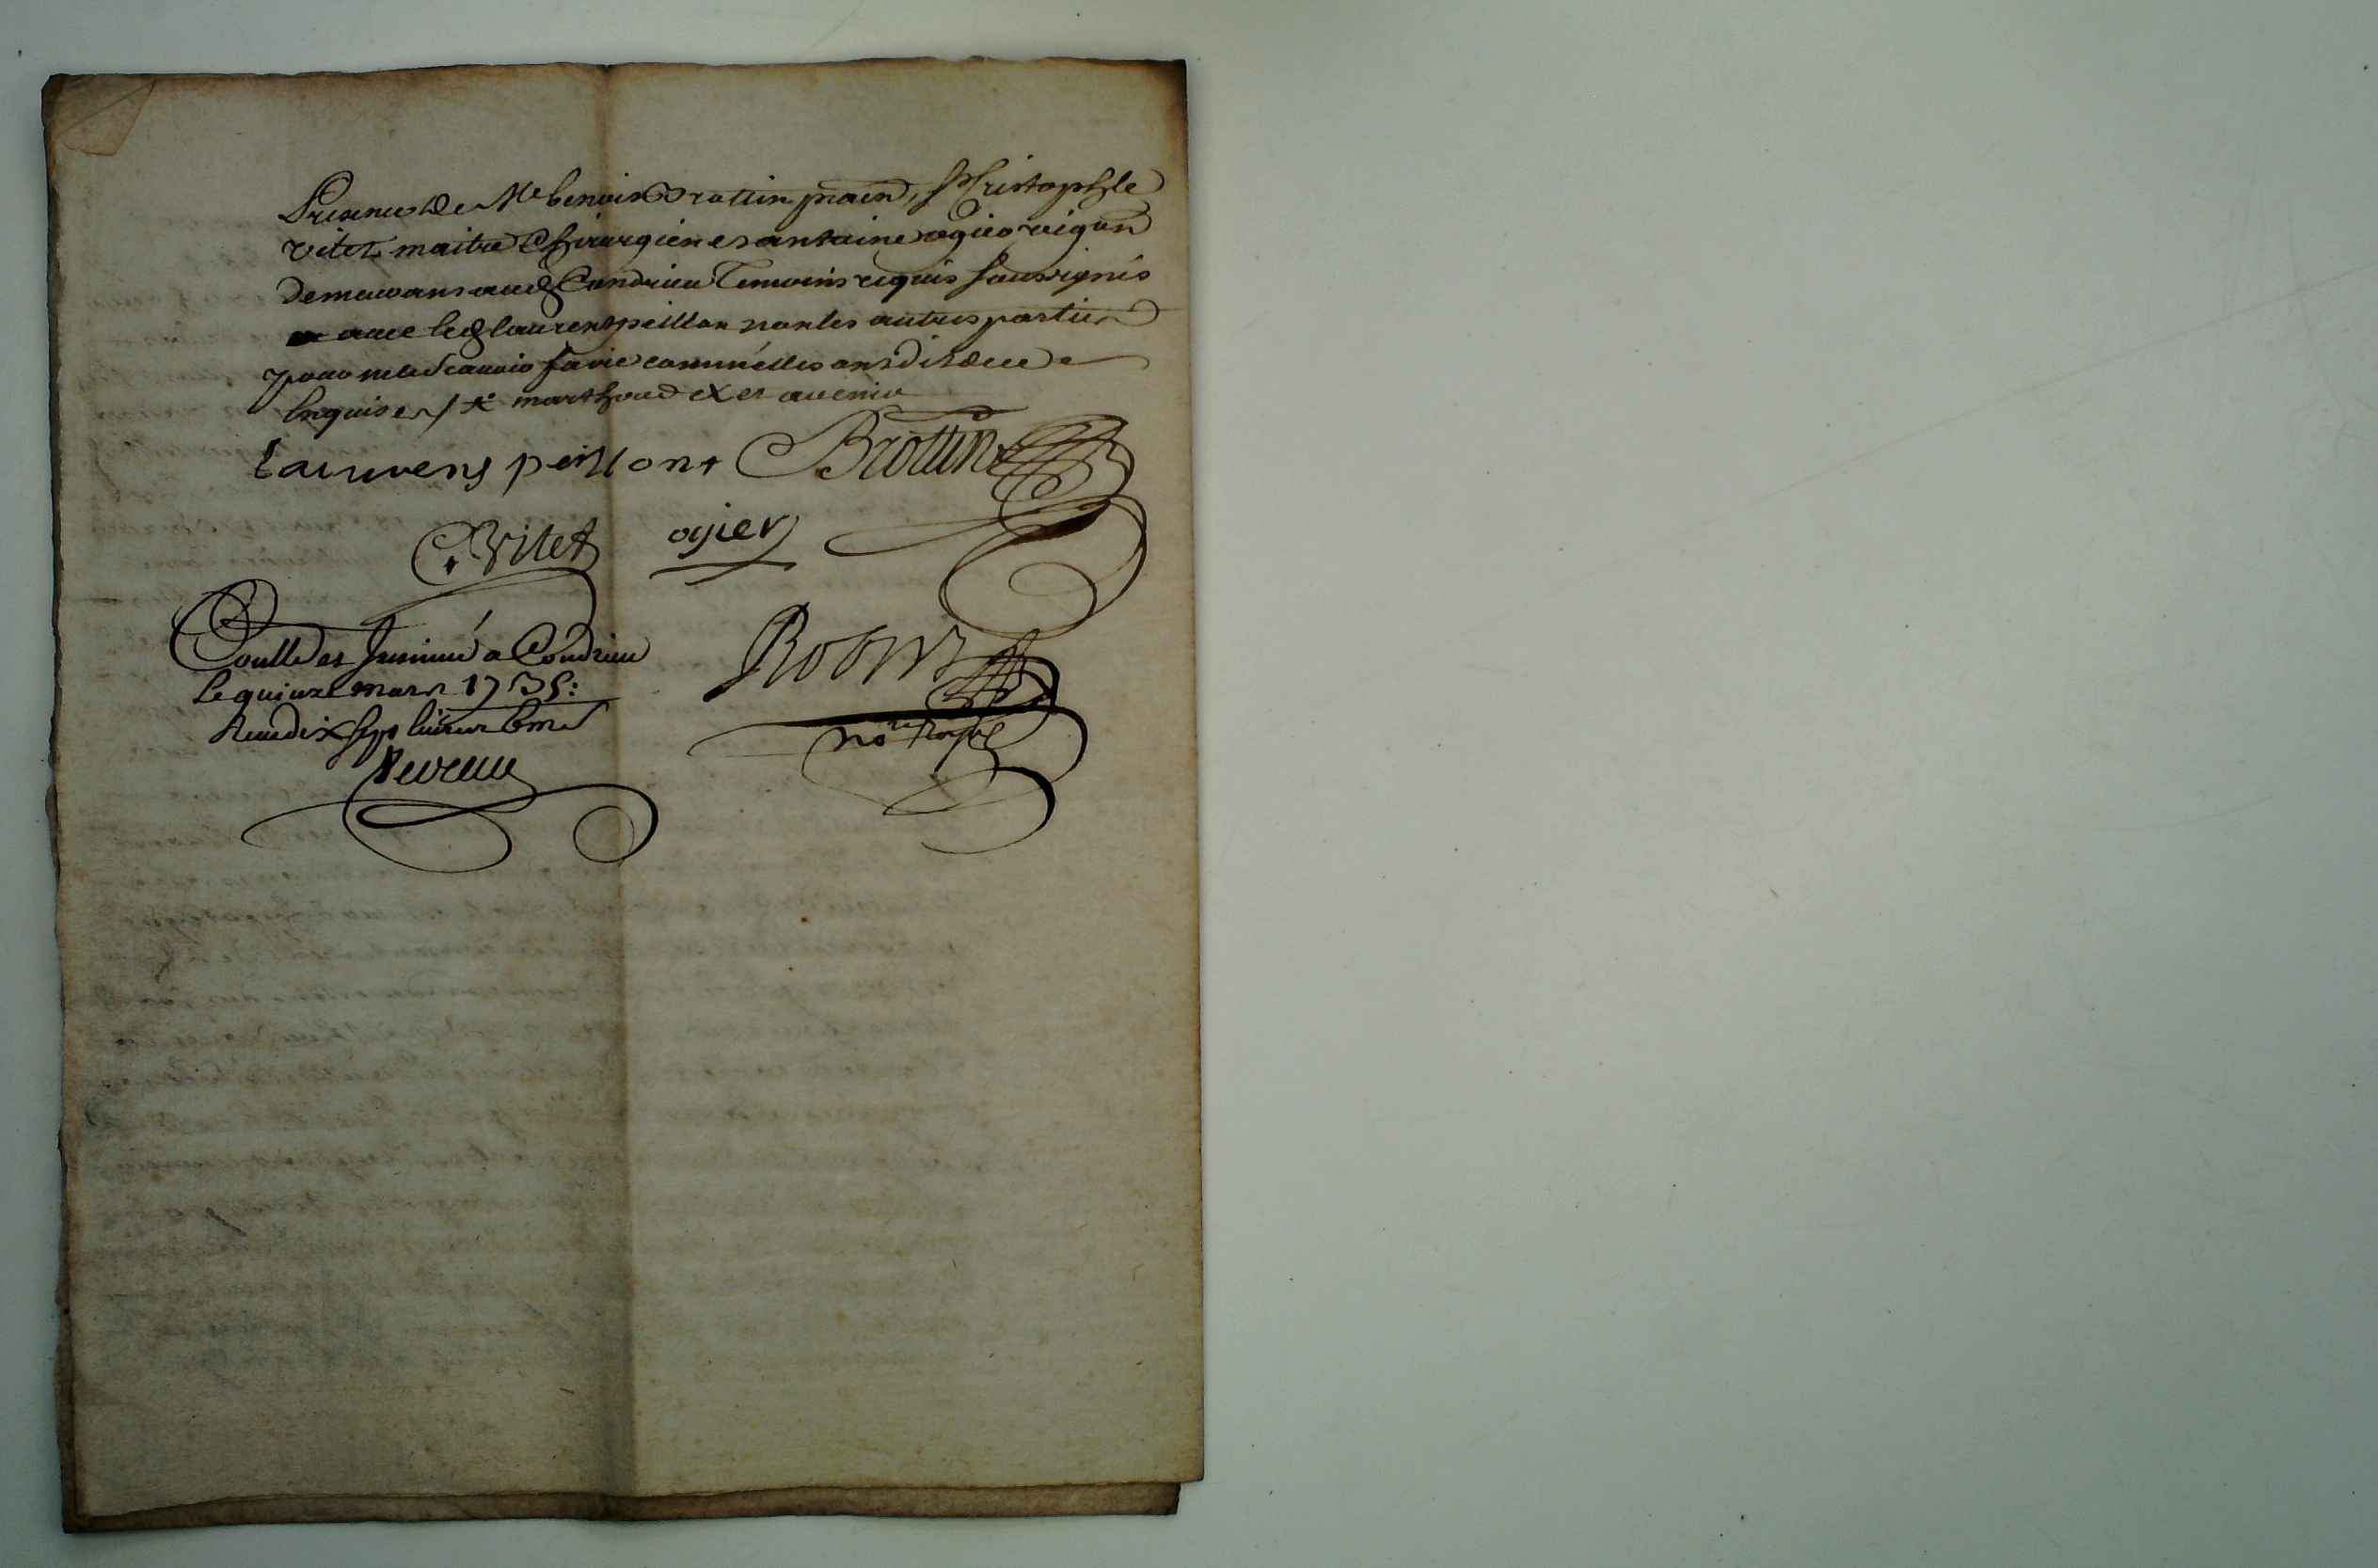 Presence de Me benoist Brottin praen, Sr Cristophle
vitet maitre Chirurgien et antoine ogier vigon
demeurans aud Condrieu Temoins requis soussignés
avec led laurent peillon non les autres parties
pour ne le scavoir faire comme elles ont dit de ce
Enquises /
lauvens peillont Brottin
C. Vitet ogier
Conllé et Insinué a Condrieu
Robin
Le quinze mars 1735:
Receu dix sept livres
nore Royal